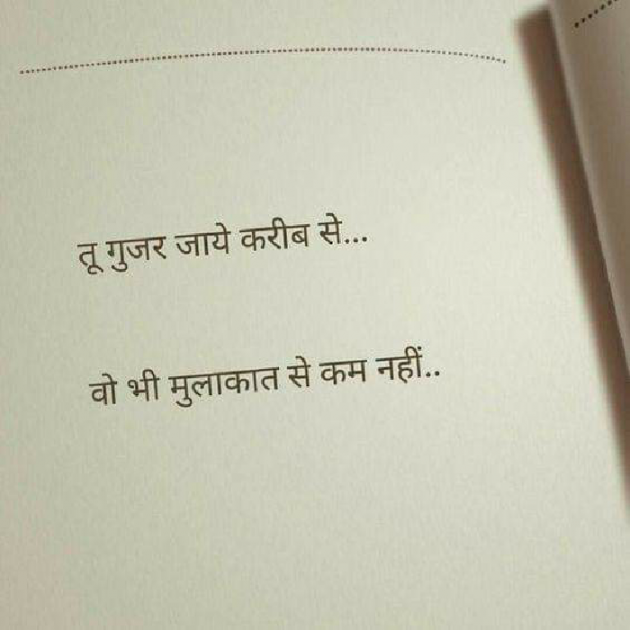 तू गुजर जाये करीब से...
वो भी मुलाकात से कम नहीं..